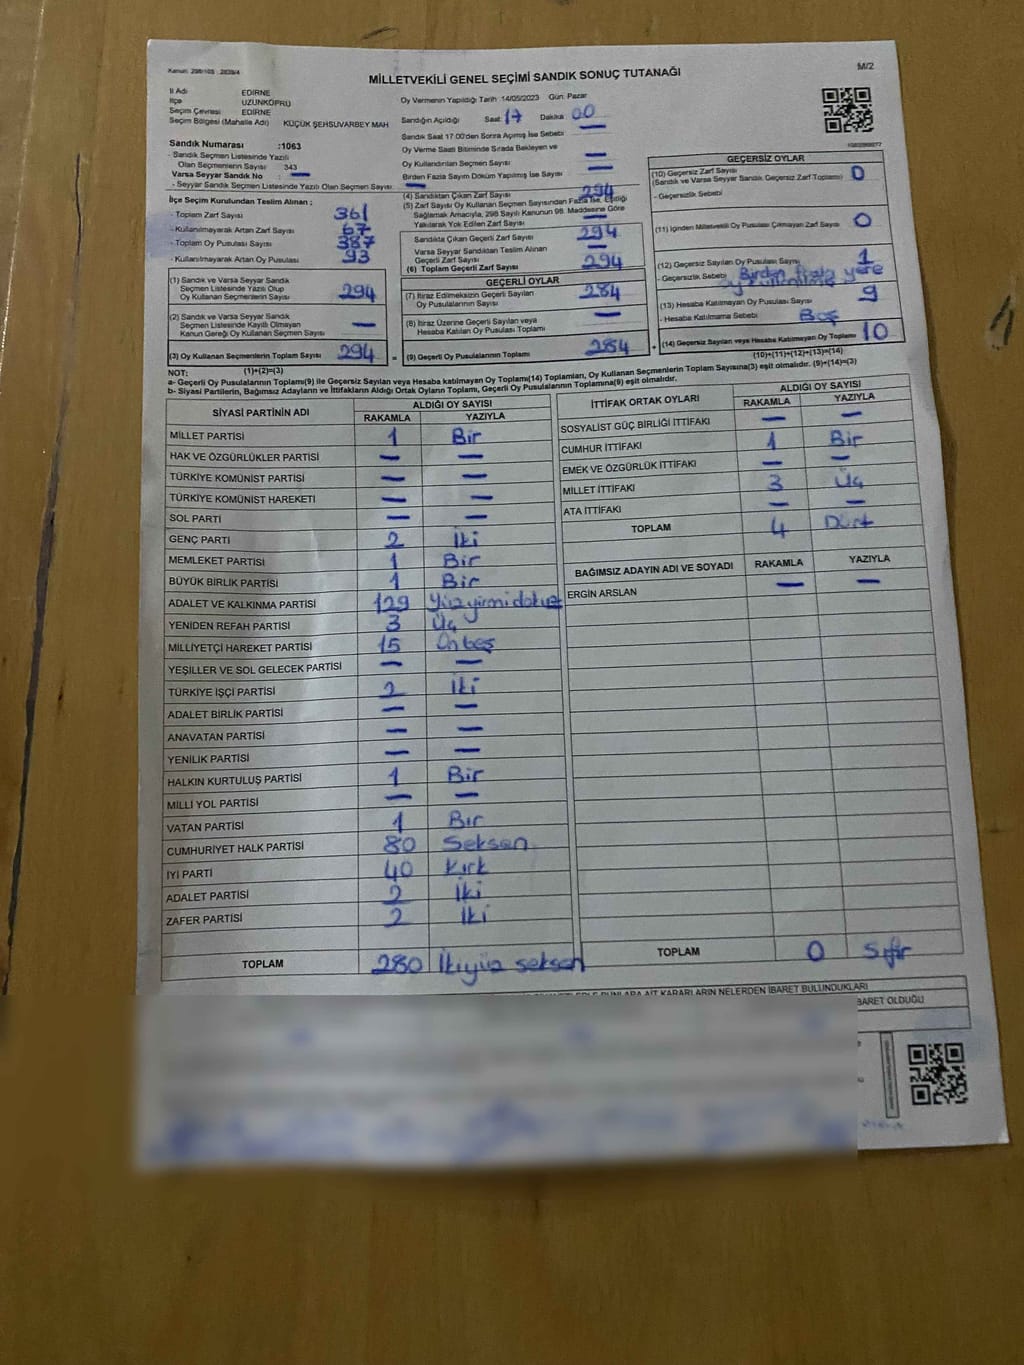 Kanun: 298/105 , 2839/4
M/2
MİLLETVEKİLİ GENEL SEÇİMİ SANDIK SONUÇ TUTANAĞI
İl Adı EDİRNE
İlçe UZUNKÖPRÜ
Seçim Çevresi EDİRNE
Seçim Bölgesi (Mahalle Adı) KÜÇÜK ŞEHSUVARBEY MAH
Sandık Numarası :1063
- Sandık Seçmen Listesinde Yazılı
Olan Seçmenlerin Sayısı 343
Varsa Seyyar Sandık No : —
- Seyyar Sandık Seçmen Listesinde Yazılı Olan Seçmen Sayısı: —
Oy Vermenin Yapıldığı Tarih 14/05/2023 Gün: Pazar
Sandığın Açıldığı Saat: 17 Dakika 00
Sandık Saat 17.00'den Sonra Açımış İse Sebebi —
Oy Verme Saati Bitiminde Sırada Bekleyen ve
Oy Kullandırılan Seçmen Sayısı —
Birden Fazla Sayım Döküm Yapılmış İse Sayısı —
İlçe Seçim Kurulundan Teslim Alınan ;
- Toplam Zarf Sayısı 361
- Kullanılmayarak Artan Zarf Sayısı 67
- Toplam Oy Pusulası Sayısı 387
- Kullanılmayarak Artan Oy Pusulası 93
(1) Sandık ve Varsa Seyyar Sandık
Seçmen Listesinde Yazılı Olup
Oy Kullanan Seçmenlerin Sayısı 294
(2) Sandık ve Varsa Seyyar Sandık
Seçmen Listesinde Kayıtlı Olmayan
Kanun Gereği Oy Kullanan Seçmen Sayısı —
(3) Oy Kullanan Seçmenlerin Toplam Sayısı 294 =
(1)+(2)=(3)
(4) Sandıktan Çıkan Zarf Sayısı 294
(5) Zarf Sayısı Oy Kullanan Seçmen Sayısından Fazla İse, Eşitliği
Sağlamak Amacıyla, 298 Sayılı Kanunun 98. Maddesine Göre
Yakılarak Yok Edilen Zarf Sayısı —
Sandıkta Çıkan Geçerli Zarf Sayısı 294
Varsa Seyyar Sandıktan Teslim Alınan
Geçerli Zarf Sayısı —
(6) Toplam Geçerli Zarf Sayısı 294
GEÇERLİ OYLAR
(7) İtiraz Edilmeksizin Geçerli Sayılan
Oy Pusulalarının Sayısı 284
(8) İtiraz Üzerine Geçerli Sayılan veya
Hesaba Katılan Oy Pusulası Toplamı —
(9) Geçerli Oy Pusulalarının Toplamı 284 +
GEÇERSİZ OYLAR
(10) Geçersiz Zarf Sayısı 0
(Sandık ve Varsa Seyyar Sandık Geçersiz Zarf Toplamı)
- Geçersizlik Sebebi
(11) İçinden Milletvekili Oy Pusulası Çıkmayan Zarf Sayısı 0
(12) Geçersiz Sayılan Oy Pusulası Sayısı 1
- Geçersizlik Sebebi Birden fazla yere
oy
(13) Hesaba Katılmayan Oy Pusulası Sayısı 9
- Hesaba Katılmama Sebebi Boş
(14) Geçersiz Sayılan veya Hesaba Katılmayan Oy Toplamı 10
(10)+(11)+(12)+(13)=(14)
NOT:
a- Geçerli Oy Pusulalarının Toplamı(9) ile Geçersiz Sayılan veya Hesaba katılmayan Oy Toplamı(14) Toplamları, Oy Kullanan Seçmenlerin Toplam Sayısına(3) eşit olmalıdır. (9)+(14)=(3)
b- Siyasi Partilerin, Bağımsız Adayların ve İttifakların Aldığı Ortak Oyların Toplamı, Geçerli Oy Pusulalarının Toplamına(9) eşit olmalıdır.
SİYASİ PARTİNİN ADI ALDIĞI OY SAYISI
RAKAMLA YAZIYLA
MİLLET PARTİSİ 1 Bir
HAK VE ÖZGÜRLÜKLER PARTİSİ — —
TÜRKİYE KOMÜNİST PARTİSİ — —
TÜRKİYE KOMÜNİST HAREKETİ — —
SOL PARTİ — —
GENÇ PARTİ 2 İki
MEMLEKET PARTİSİ 1 Bir
BÜYÜK BİRLİK PARTİSİ 1 Bir
ADALET VE KALKINMA PARTİSİ 129 Yüzyirmidokuz
YENİDEN REFAH PARTİSİ 3 Üç
MİLLİYETÇİ HAREKET PARTİSİ 15 Onbeş
YEŞİLLER VE SOL GELECEK PARTİSİ — —
TÜRKİYE İŞÇİ PARTİSİ 2 İki
ADALET BİRLİK PARTİSİ — —
ANAVATAN PARTİSİ — —
YENİLİK PARTİSİ — —
HALKIN KURTULUŞ PARTİSİ 1 Bir
MİLLİ YOL PARTİSİ — —
VATAN PARTİSİ 1 Bir
CUMHURİYET HALK PARTİSİ 80 Seksen
İYİ PARTİ 40 Kırk
ADALET PARTİSİ 2 İki
ZAFER PARTİSİ 2 İki
TOPLAM 280 İkiyüz seksen
İTTİFAK ORTAK OYLARI ALDIĞI OY SAYISI
RAKAMLA YAZIYLA
SOSYALİST GÜÇ BİRLİĞİ İTTİFAKI — —
CUMHUR İTTİFAKI 1 Bir
EMEK VE ÖZGÜRLÜK İTTİFAKI — —
MİLLET İTTİFAKI 3 Üç
ATA İTTİFAKI — —
TOPLAM 4 Dört
BAĞIMSIZ ADAYIN ADI VE SOYADI RAKAMLA YAZIYLA
ERGİN ARSLAN — —
TOPLAM 0 Sıfır
BUNLARA AİT KARARLARIN NELERDEN İBARET BULUNDUKLARI
İBARET OLDUĞU